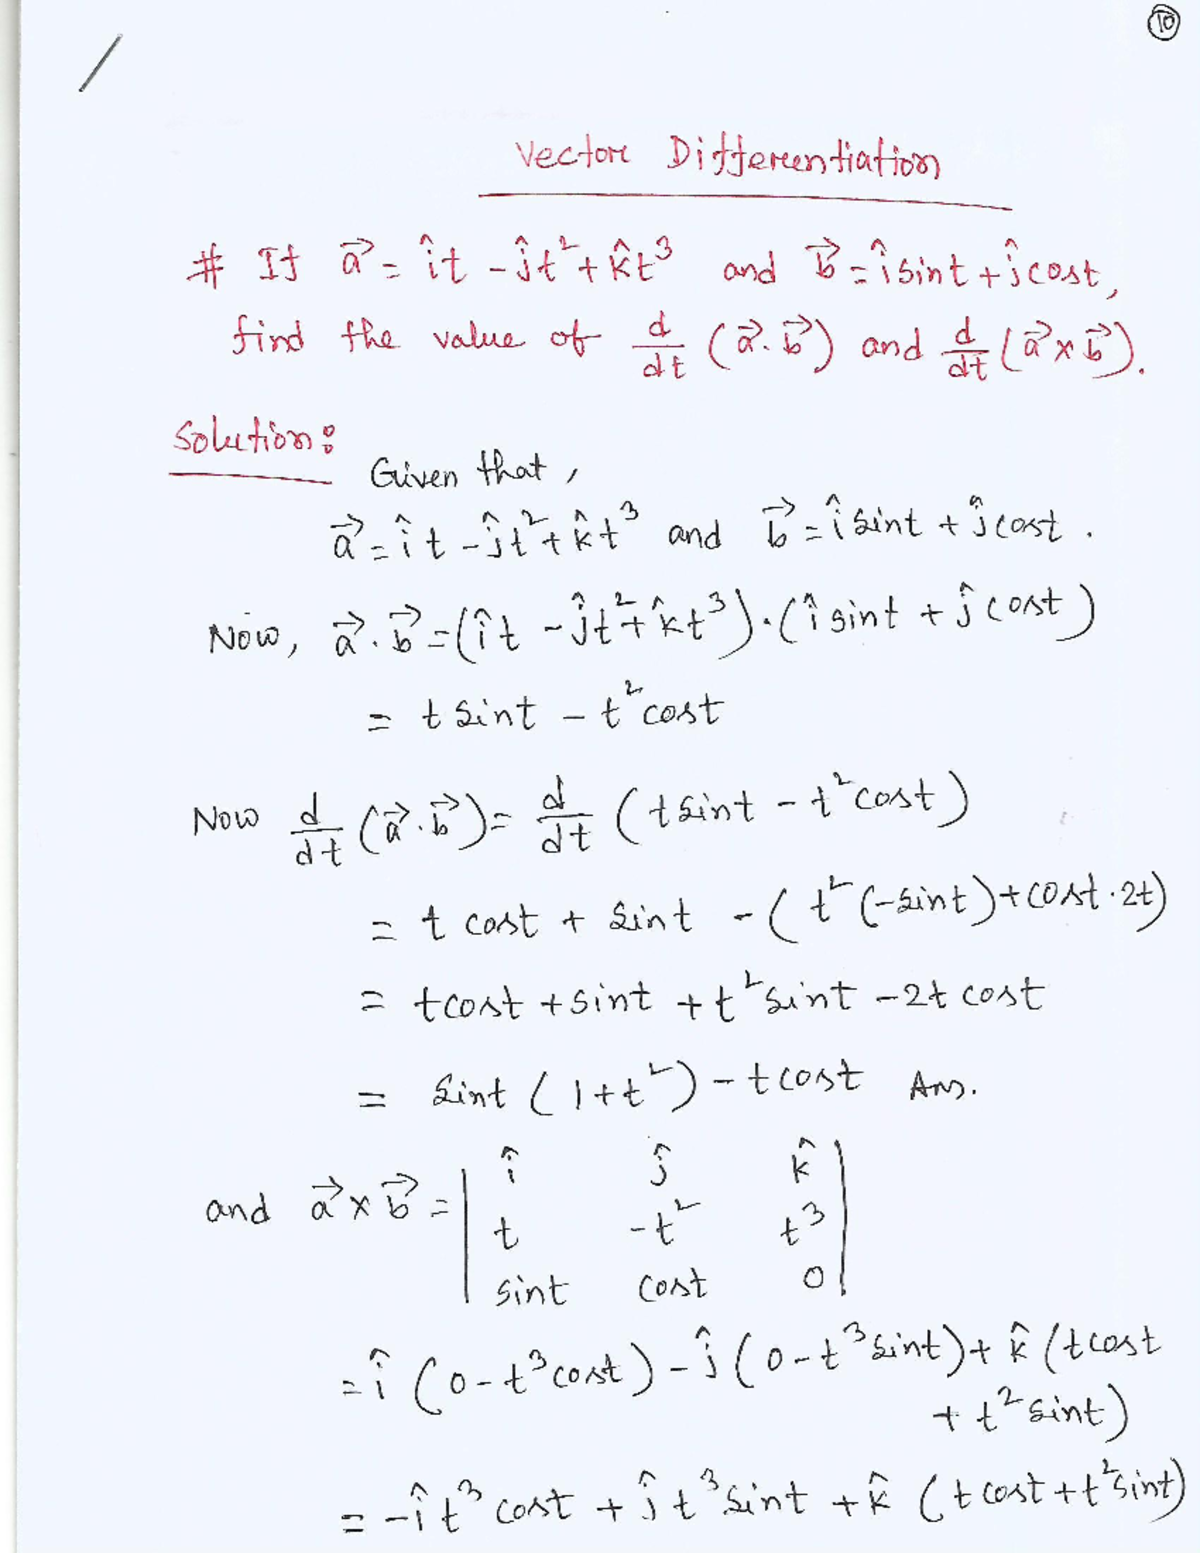 10
Vector Differentiation
# If a⃗ = î t - ĵ t² + k̂ t³ and b⃗ = î sint + ĵ cost,
find the value of d/dt (a⃗ . b⃗) and d/dt (a⃗ × b⃗).
Solution:
Given that,
a⃗ = î t - ĵ t² + k̂ t³ and b⃗ = î sint + ĵ cost .
Now, a⃗ . b⃗ = (î t - ĵ t² + k̂ t³) . (î sint + ĵ cost)
= t sint - t² cost
Now d/dt (a⃗ . b⃗) = d/dt (t sint - t² cost)
= t cost + sint - (t² (-sint) + cost . 2t)
= t cost + sint + t² sint - 2t cost
= sint (1 + t²) - t cost Ans.
and a⃗ × b⃗ = | î ĵ k̂ |
| t -t² t³ |
| sint cost 0 |
= î (0 - t³ cost) - ĵ (0 - t³ sint) + k̂ (t cost
+ t² sint)
= -î t³ cost + ĵ t³ sint + k̂ (t cost + t² sint)